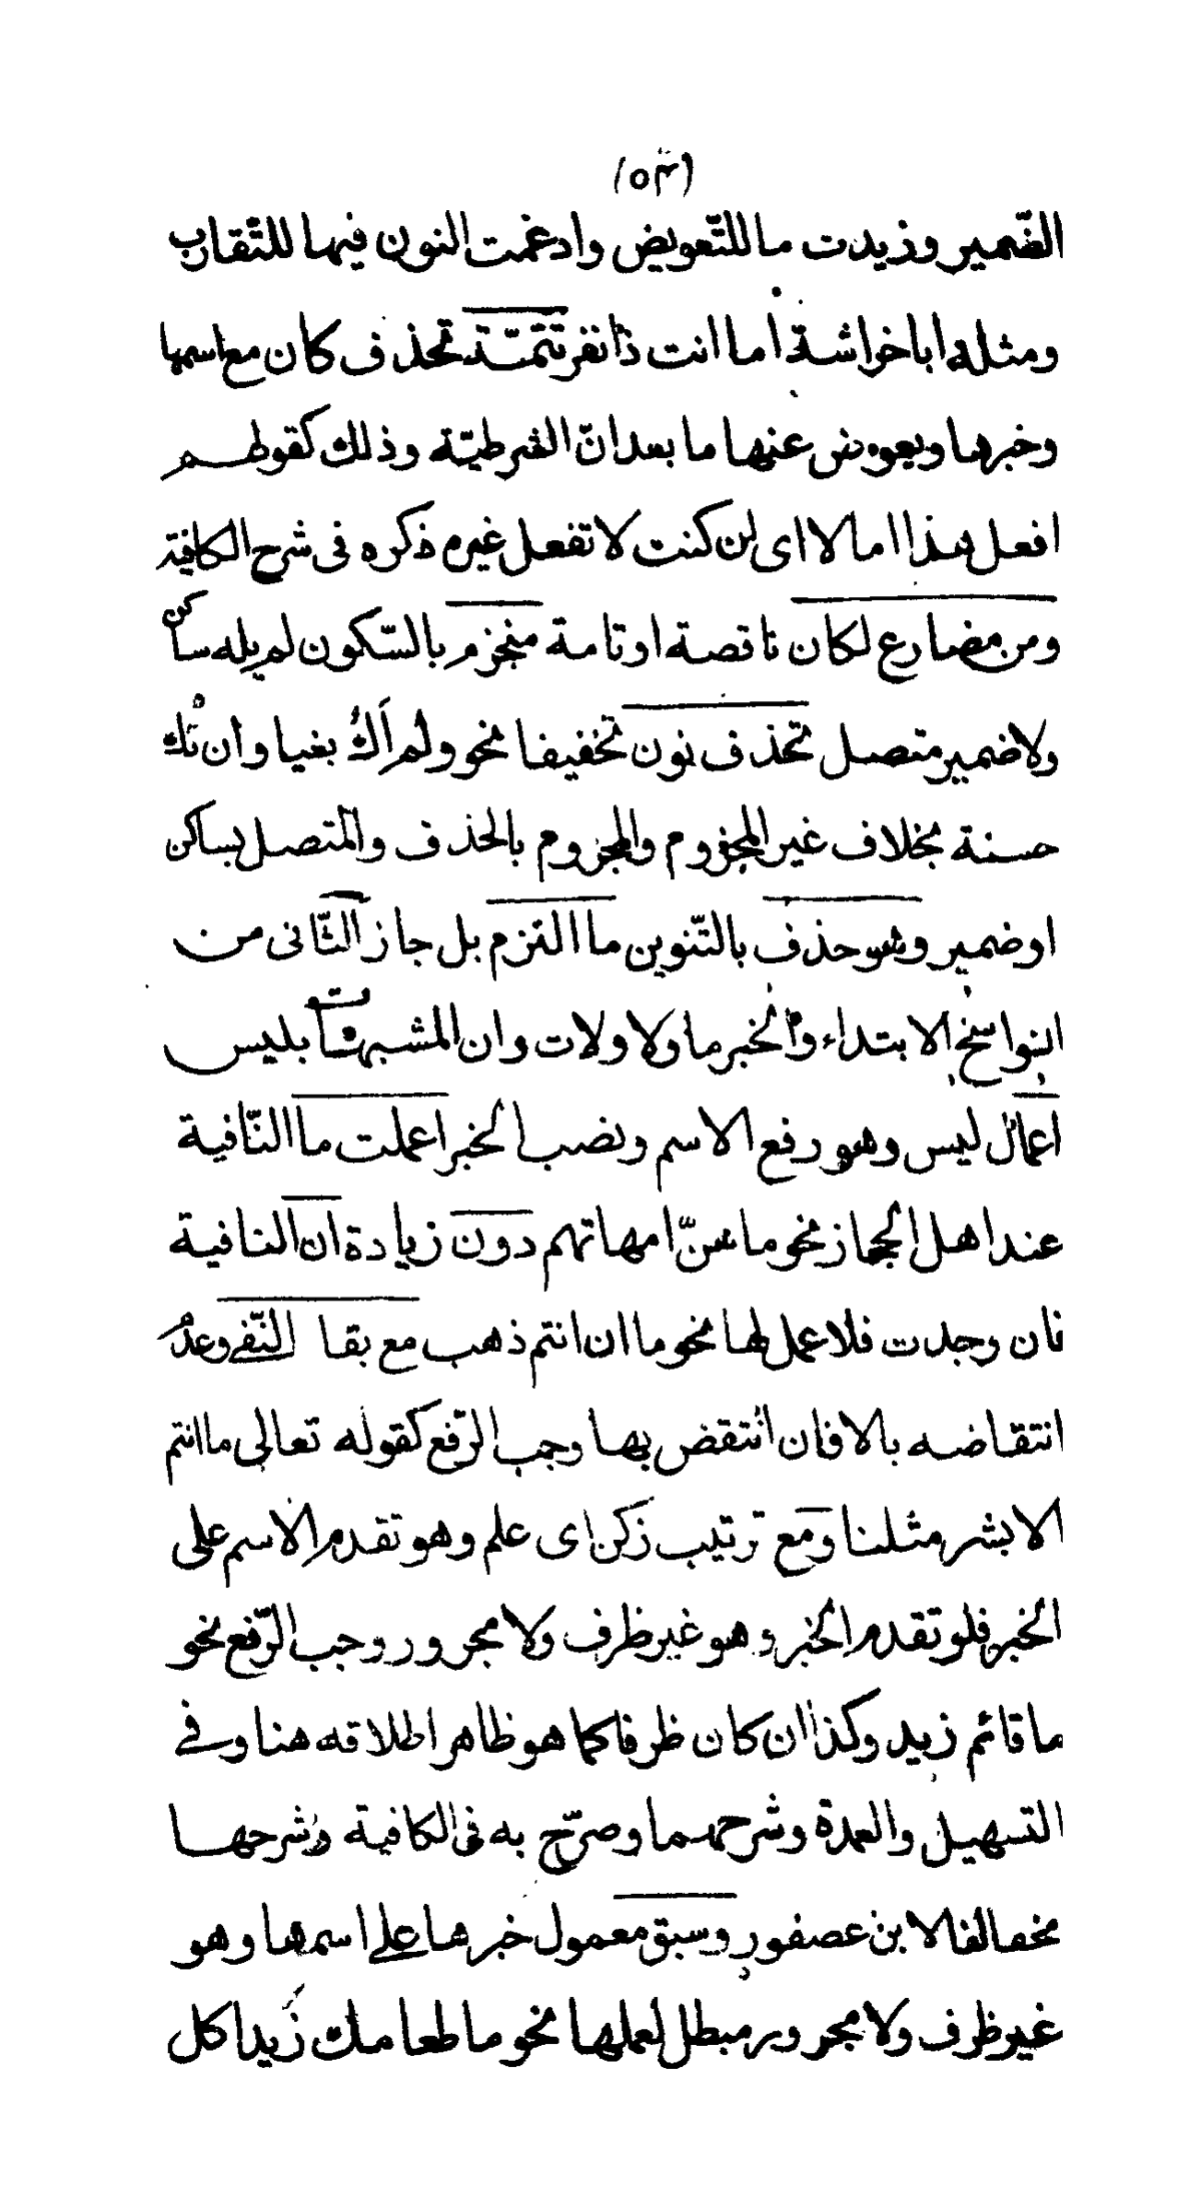 (٥٣)
الضّمير وزيدت ما للتّعويض وادغمت النون فيها للتّقارب
ومثله ابا خراشة اما انت ذا نفر تتمّة تحذف كان مع اسمها
وخبرها ويعوض عنها ما بعد انّ الشرطيّة وذلك كقولهم
افعل هذا اما لا اى ان كنت لا تفعل غيره ذكره فى شرح الكافية
ومن مضارع لكان ناقصة او تامة منجزم بالسّكون لم يله ساكن
ولا ضمير متصل تحذف نون تخفيفا نحو ولم اَكُ بغيا وان تك
حسنة بخلاف غير المجزوم والمجزوم بالحذف والمتصل بساكن
او ضمير وهو حذف بالتّنوين ما التزم بل جاز الثّانى من
النواسخ الابتداء والخبر ما ولا ولات وان المشبهات بليس
اعمال ليس وهو رفع الاسم ونصب الخبر اعملت ما النّافية
عند اهل الحجاز نحو ما هنّ امهاتهم دون زيادة ان النافية
فان وجدت فلا عمل لها نحو ما ان انتم ذهب مع بقا النّفى وعدم
انتقاضه بالا فان انتقض بها وجب الرّفع كقوله تعالى ما انتم
الا بشر مثلنا ومع ترتيب زكن اى علم وهو تقدم الاسم على
الخبر فلو تقدم الخبر وهو غير ظرف ولا مجرور وجب الرّفع نحو
ما قائم زيد وكذا ان كان ظرفا كما هو ظاهر اطلاقه هنا وفى
التسهيل والعمدة وشرحهما وصرّح به فى الكافية وشرحها
مخالفا لابن عصفور وسبق معمول خبرها على اسمها وهو
غير ظرف ولا مجرور مبطل لعملها نحو ما طعامك زيد اكل